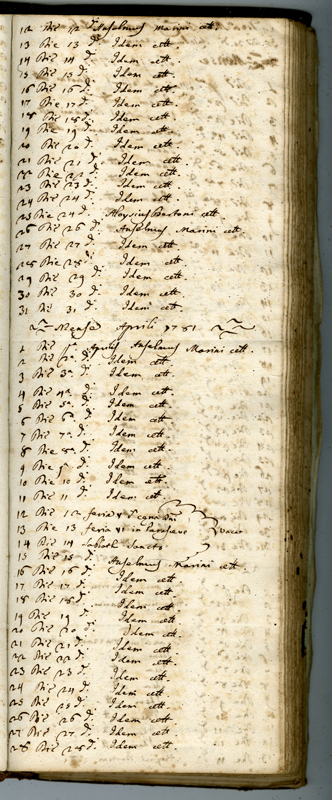 12 Die 12 d. Anselmus Marini cett.
13 Die 13 d. Idem cett.
14 Die 14 d. Idem cett.
15 Die 15 d. Idem cett.
16 Die 16 d. Idem cett.
17 Die 17 d. Idem cett.
18 Die 18 d. Idem cett.
19 Die 19 d. Idem cett.
20 Die 20 d. Idem cett.
21 Die 21 d. Idem cett.
22 Die 22 d. Idem cett.
23 Die 23 d. Idem cett.
24 Die 24 d. Idem cett.
25 Die d. Aloysius Bertoni cett.
26 Die 26 d. Anselmus Marini cett.
27 Die 27 d. Idem cett.
28 Die 28 d. Idem cett.
29 Die 29 d. Idem cett.
30 Die 30 d. Idem cett.
31 Die 31 d. Idem cett.
Mense Aprili 1751
1 Die Aprilis Anselmus Marini cett.
2 Die 2a d. Idem cett.
3 Die 3a d. Idem cett.
4 Die 4a d. Idem cett.
5 Die 5a d. Idem cett.
6 Die 6a d. Idem cett.
7 Die 7a d. Idem cett.
8 Die 8a d. Idem cett.
9 Die 9 d. Idem cett.
10 Die 10 d. Idem cett.
11 Die 11 d. Idem cett.
12 Die 12 feria V
13 Die 13 feria VI in Parasceve
14 Die 14 Sabbati Sancti
15 Die 15 d. Anselmus Marini cett.
16 Die 16 d. Idem cett.
17 Die 17 d. Idem cett.
18 Die 18 d. Idem cett.
19 Die 19 d. Idem cett.
20 Die 20 d. Idem cett.
21 Die 21 d. Idem cett.
22 Die 22 d. Idem cett.
23 Die 23 d. Idem cett.
24 Die 24 d. Idem cett.
25 Die 25 d. Idem cett.
26 Die 26 d. Idem cett.
27 Die 27 d. Idem cett.
28 Die 28 d. Idem cett.